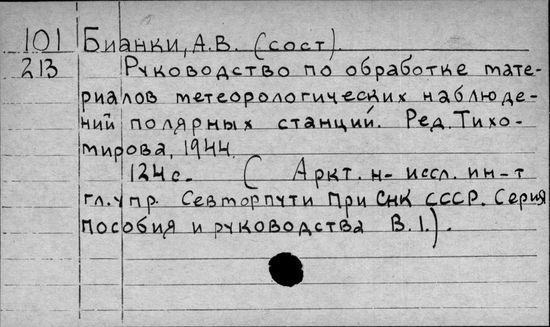 101 Бианки, А.В. (сост).
213 Руководство по обработке мате-
риалов метеорологических наблюде-
ний полярных станций. Ред. Тихо-
мирова, 1944.
124с. ( Аркт. н- иссл. ин-т
гл. упр. Севморпути при СНК СССР. Серия
Пособия и руководства В. 1.).